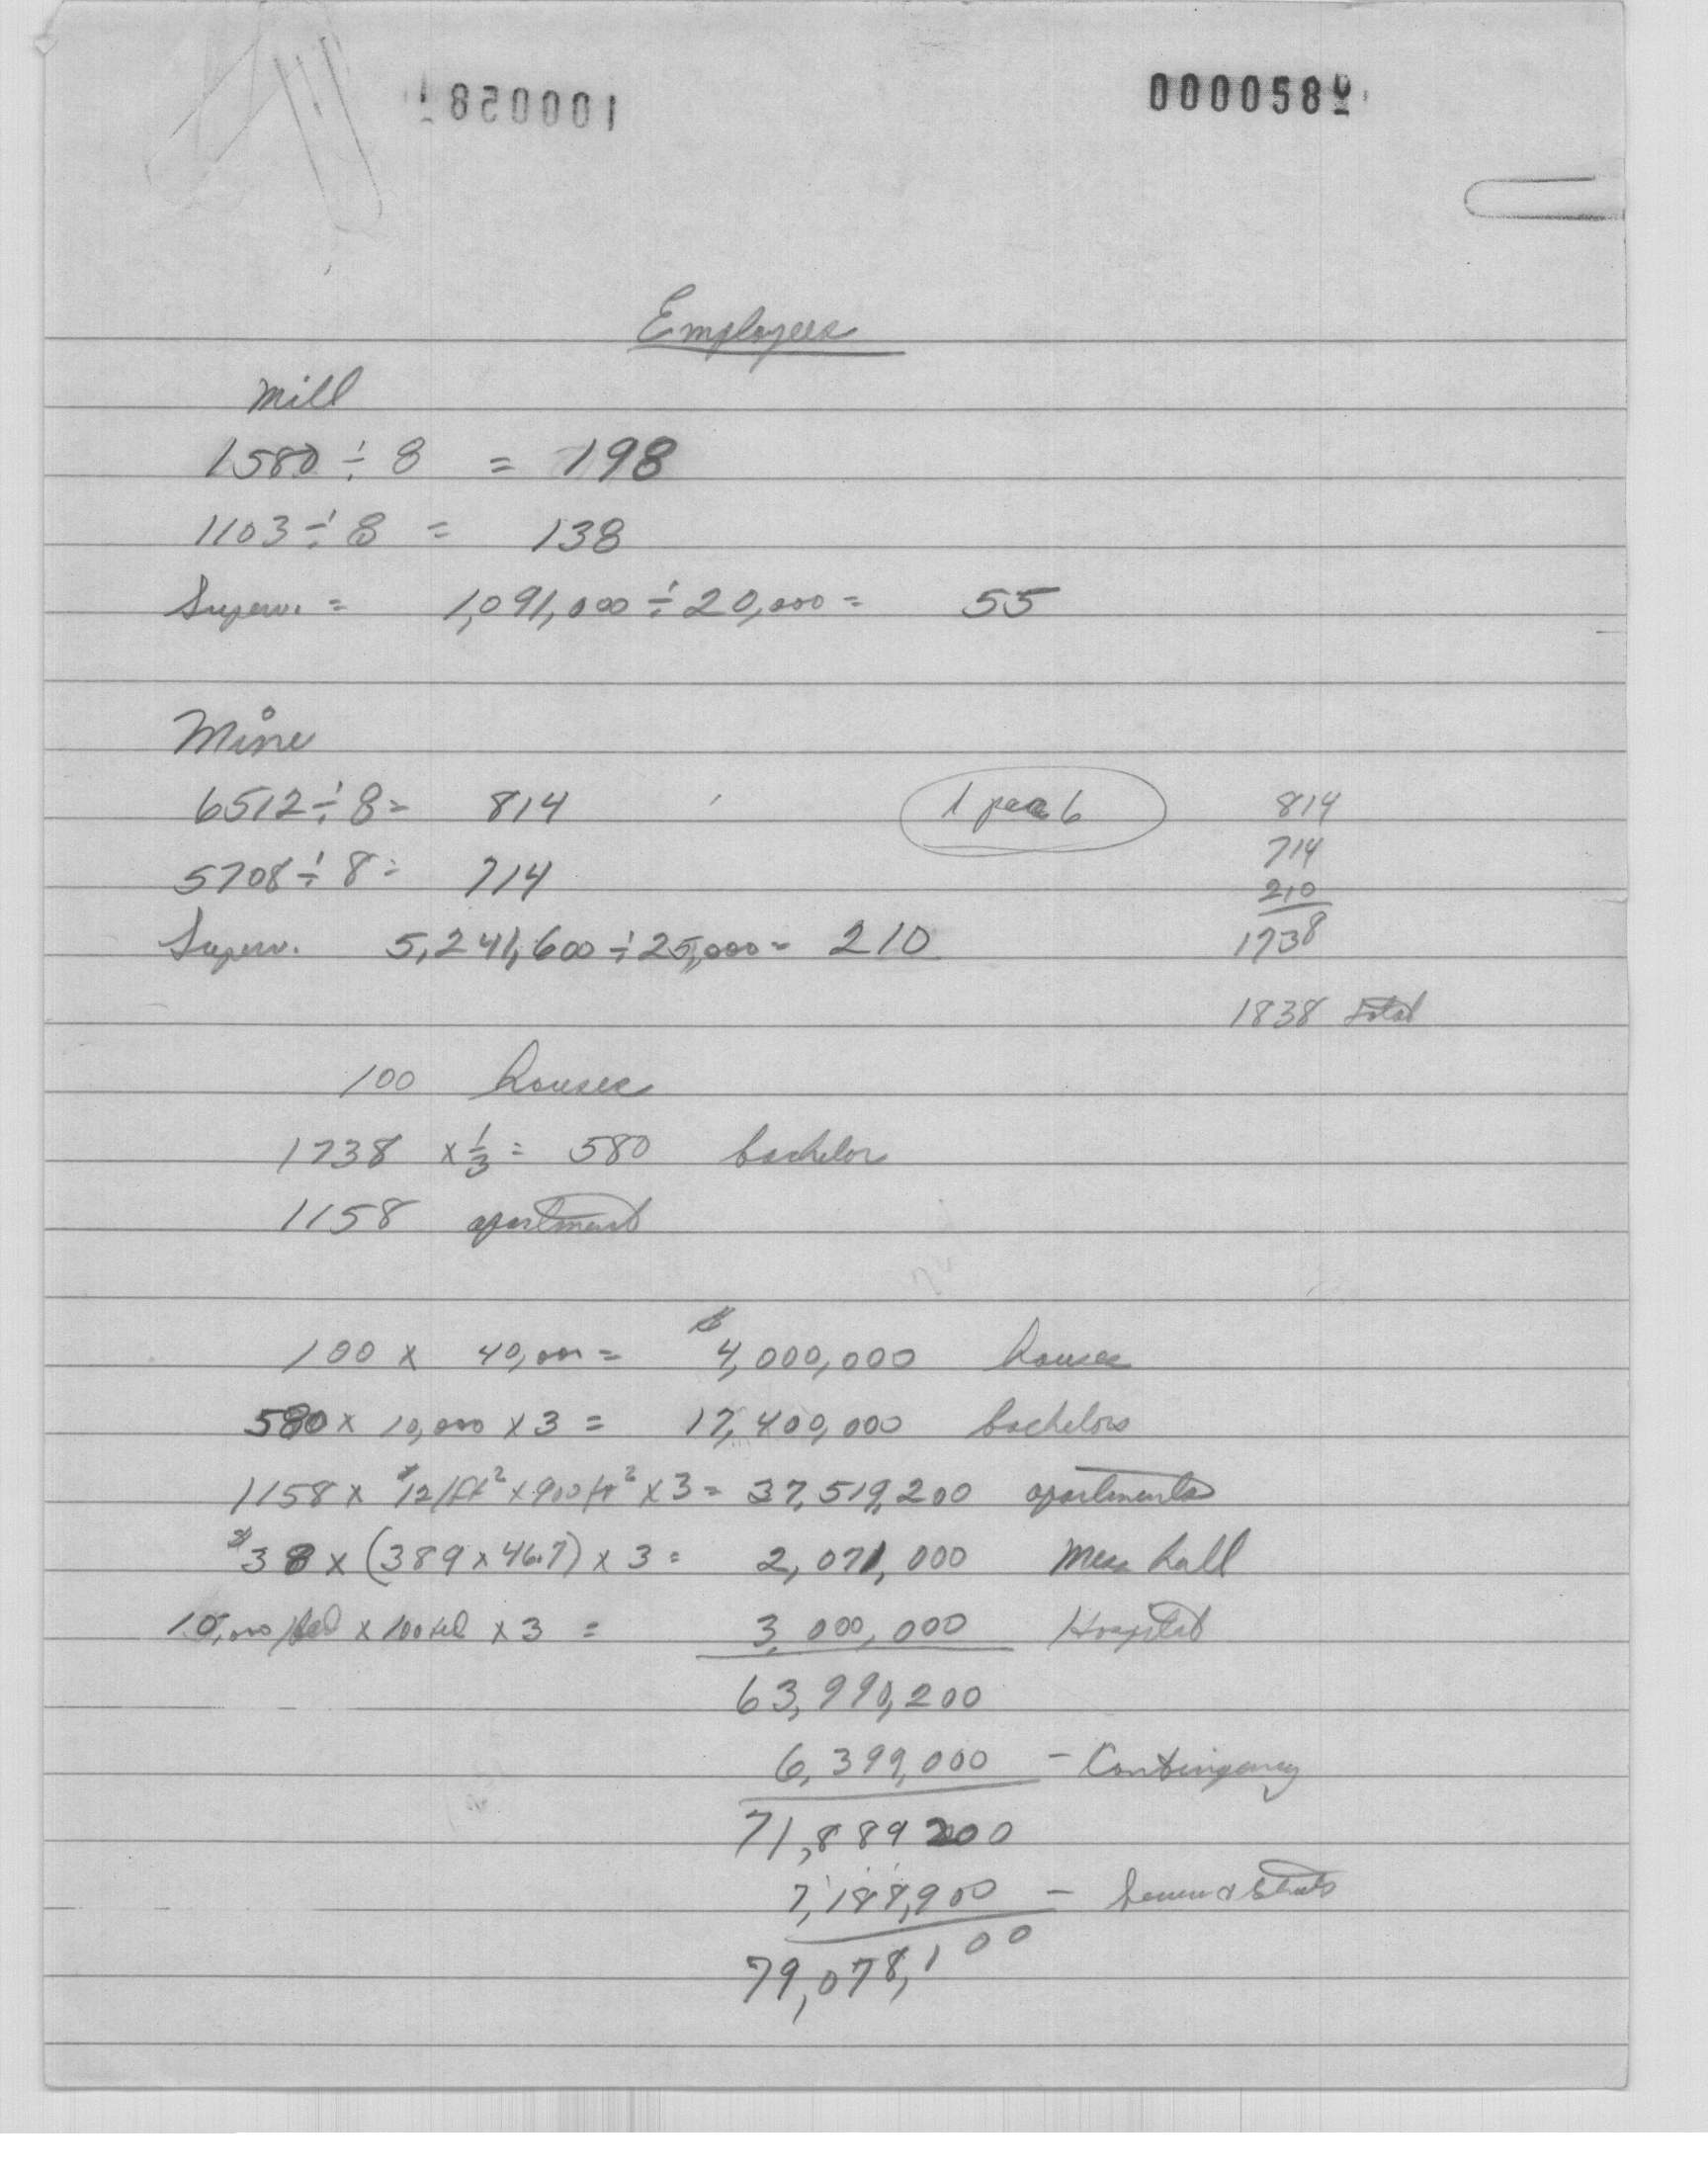 0000580
Employees
Mill
1580 ÷ 8 = 198
1103 ÷ 8 = 138
Superv. = 1,091,000 ÷ 20,000 = 55
Mine
6512 ÷ 8 = 814 1 per 6 814
5708 ÷ 8 = 714 714
210
Superv. 5,241,600 ÷ 25,000 = 210 1738
1838 total
100 houses
1738 x 1/3 = 580 bachelor
1158 apartment
100 x 40,000 = $4,000,000 houses
580 x 10,000 x 3 = 17,400,000 bachelors
1158 x $12/ft² x 900 ft² x 3 = 37,519,200 apartments
$38 x (389 x 46.7) x 3 = 2,071,000 Mess hall
10,000/bed x 100 bed x 3 = 3,000,000 Hospital
63,990,200
6,399,000 - Contingency
71,889200
7,188,900 - Sewer & Streets
79,078,100